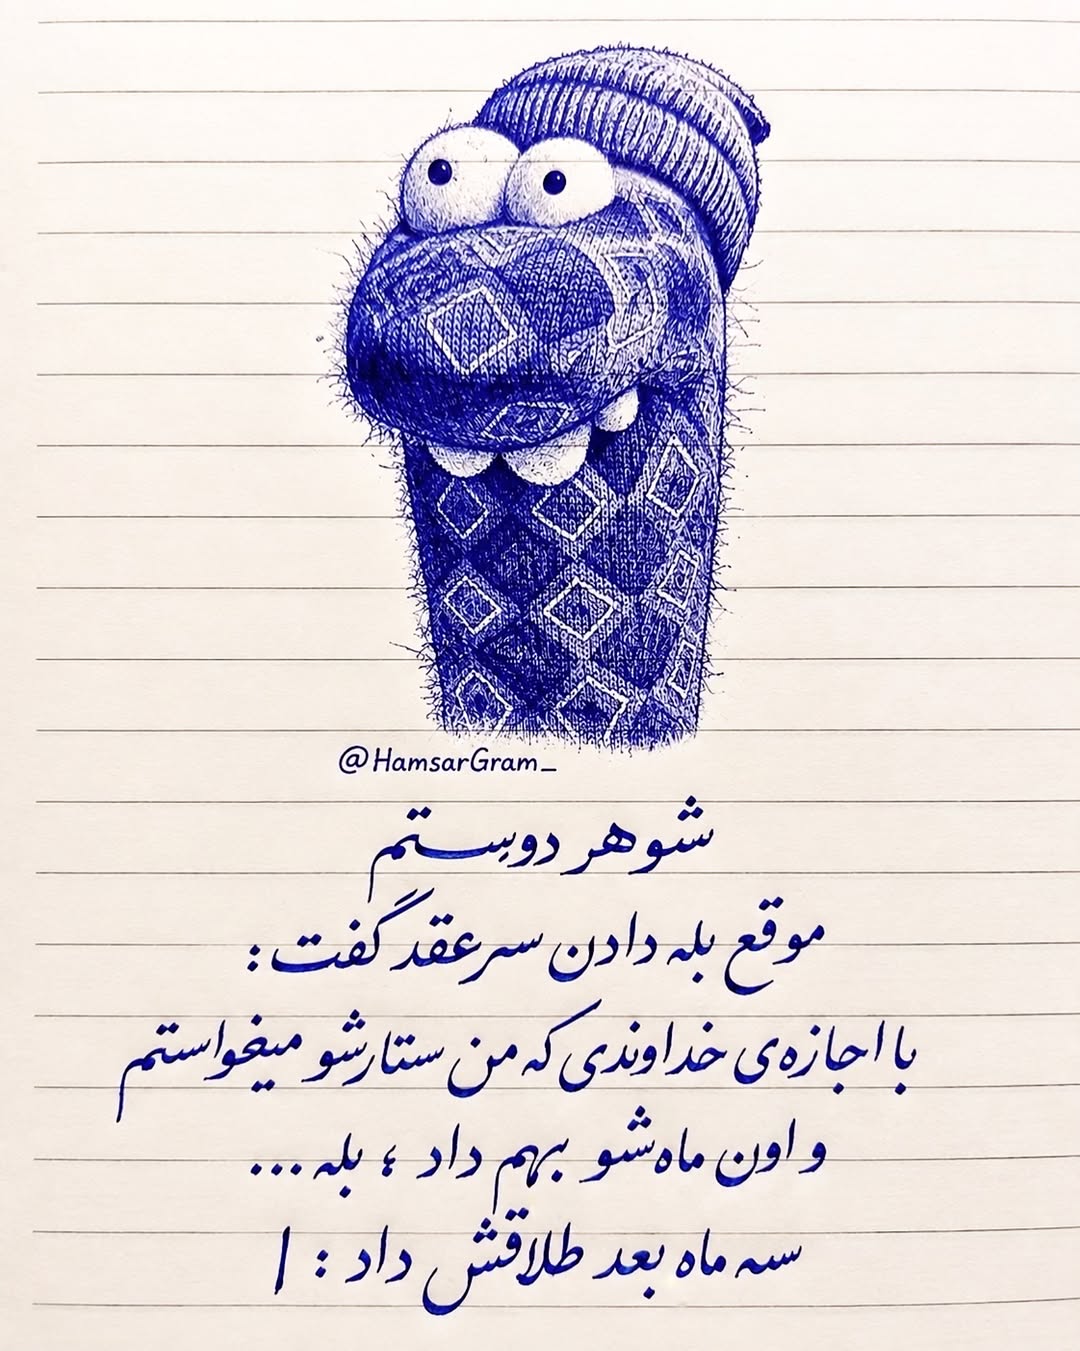 @HamsarGram_
شوهر دوستم
موقع بله دادن سر عقد گفت :
با اجازه‌ی خداوندی که من ستارشو میخواستم
و اون ماه‌شو بهم داد ؛ بله ...
سه ماه بعد طلاقش داد : |